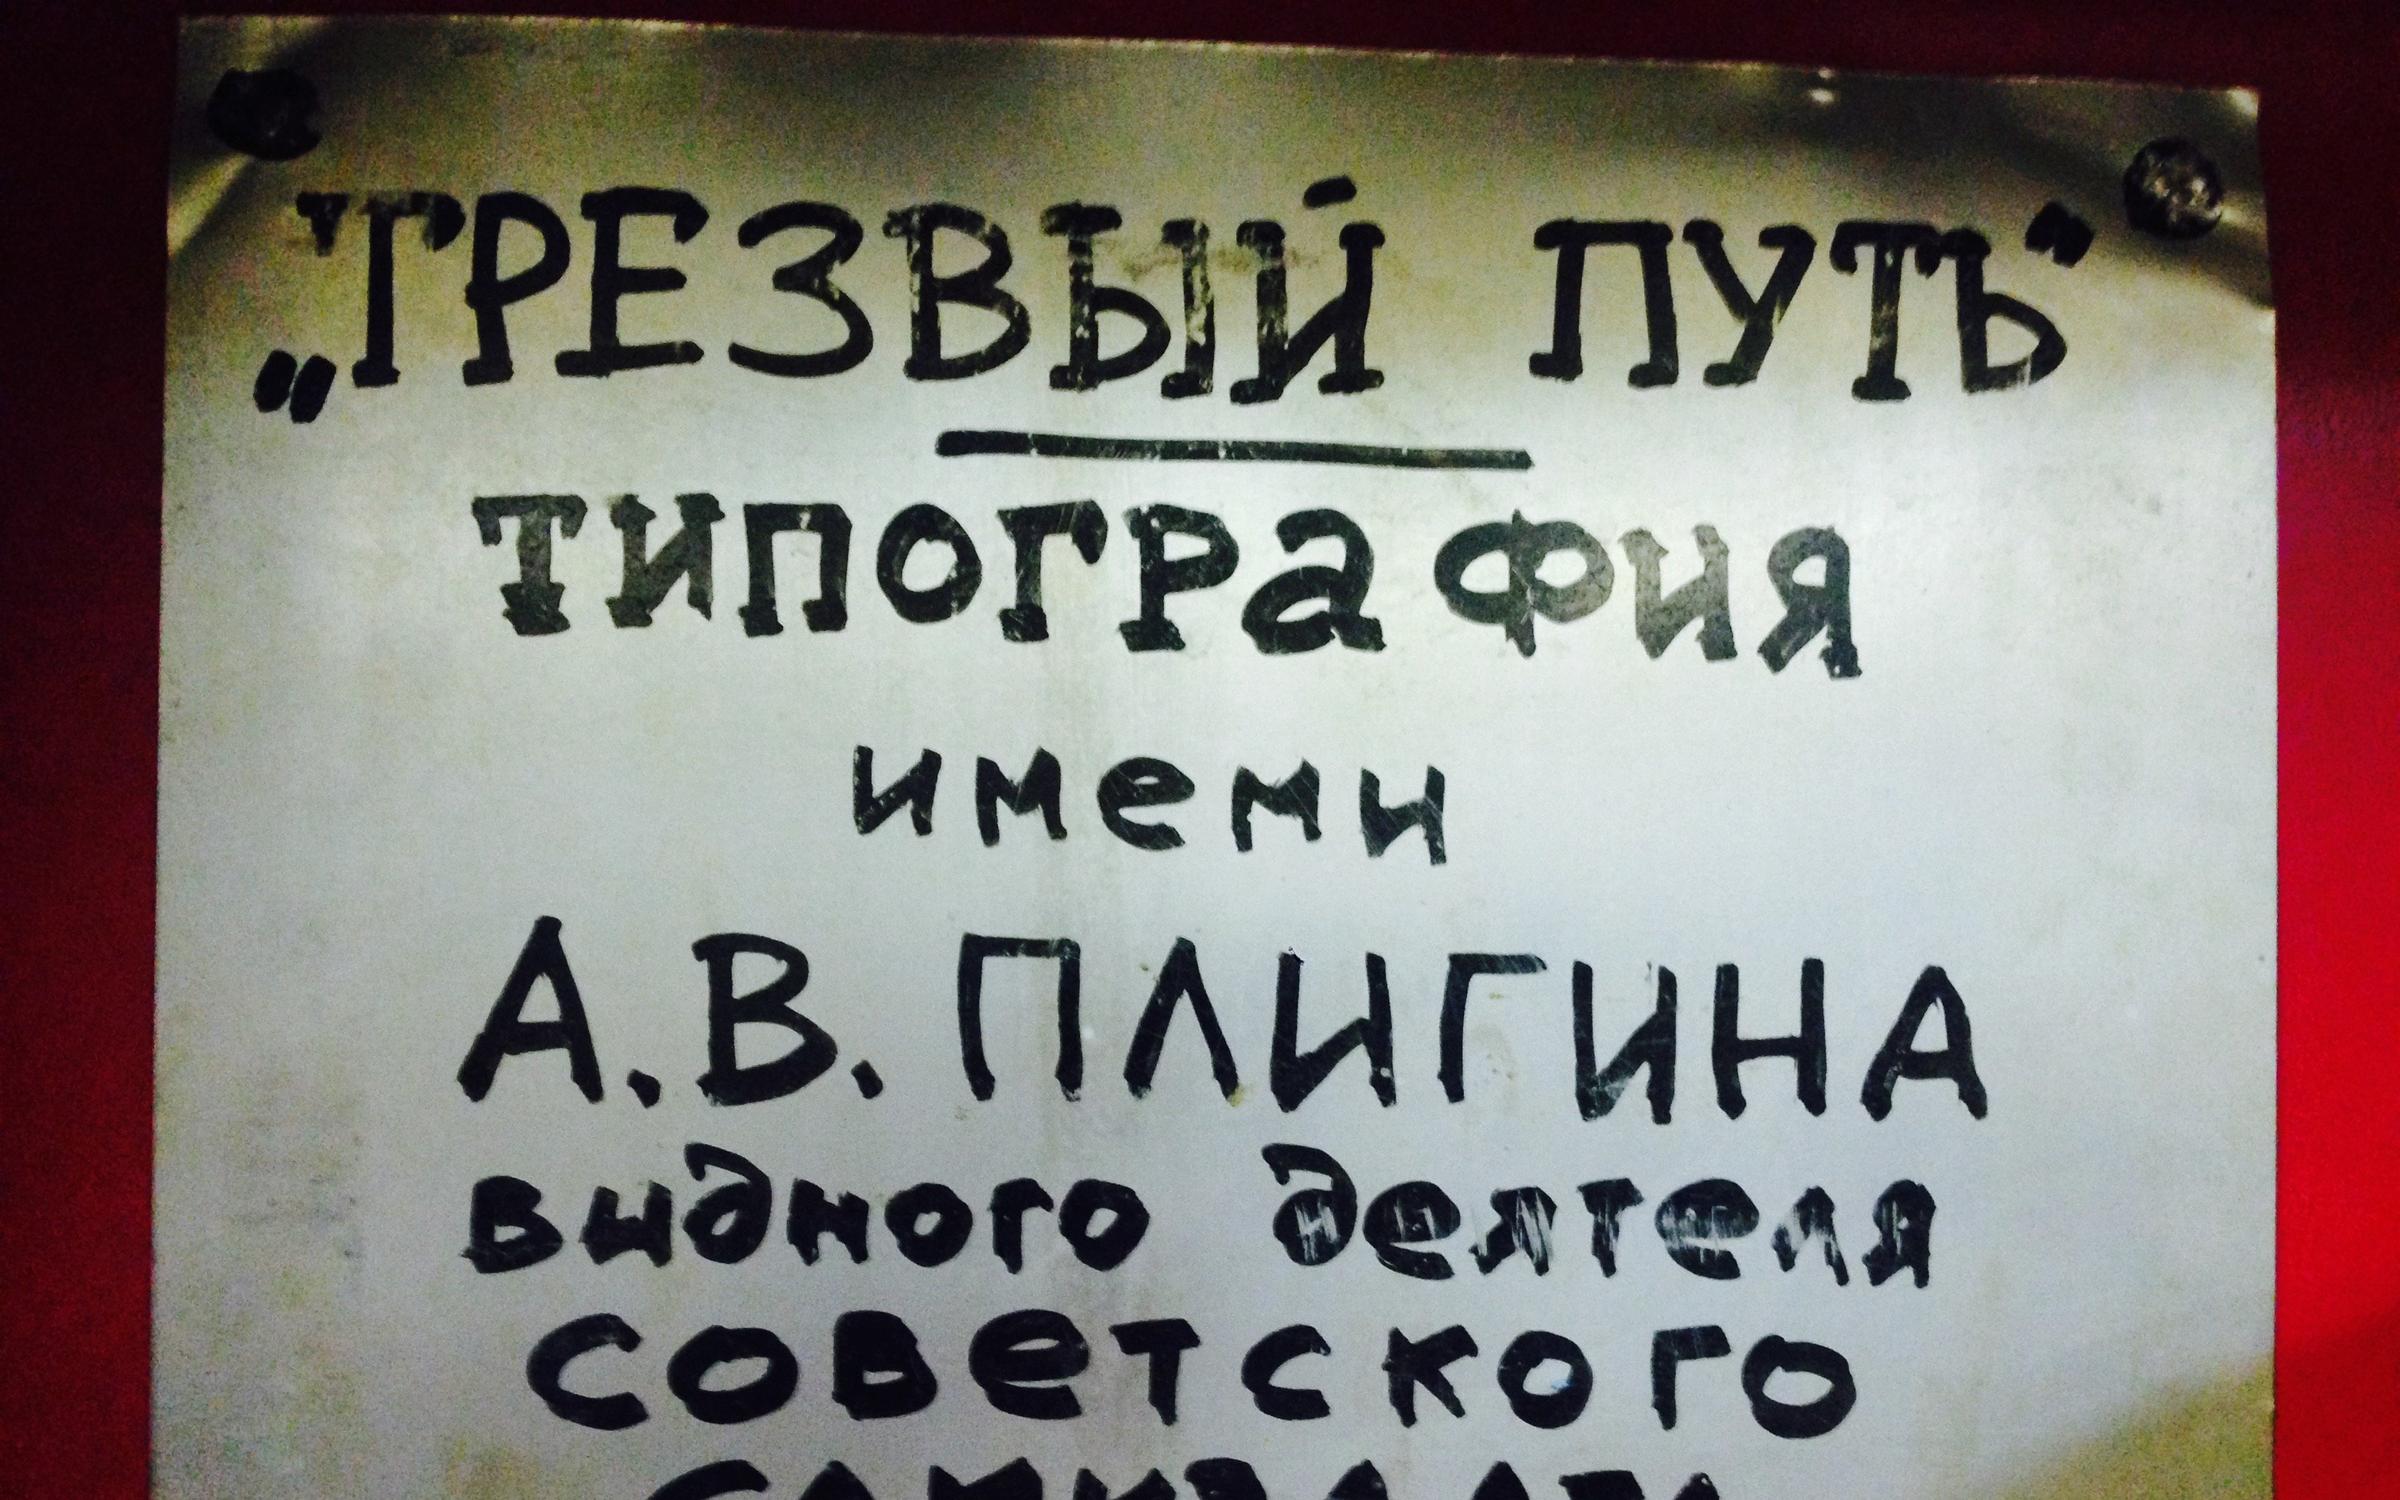 „ТРЕЗВЫЙ ПУТЬ“
типография
имени
А.В. ПЛИГИНА
видного деятеля
советского
самиздата